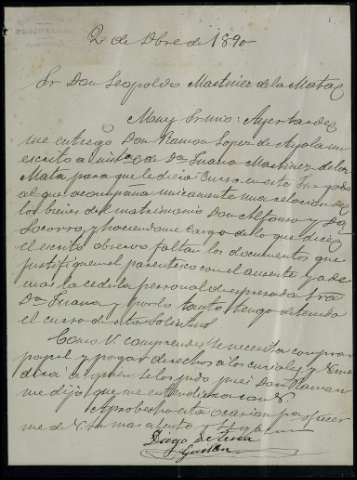 2 de Dbre de 1890
Sr Don Leopoldo Martinez de la Mata
Muy Sr mio: Ayer tarde
me entregó Don Ramon Lopez de Ayala un
escrito a Dª Juana Martinez de la
Mata, para que le diera curso en este Juzgado
al que acompaña unicamente una relacion de
los bienes del matrimonio Don Alfonso y Dª
Socorro, y haciendome cargo de lo que dice
el escrito observo faltan los documentos que
justifiquen el parentesco con el ausente y ade
mas la cedula personal de expresada Sra
Dª Juana y por lo tanto tengo detenido
el curso de esta solicitud
Como V. comprende se necesita comprar
papel y pagar derechos a los curiales y V. me
dirá a quien se los pido pues Don Ramon
me dijo que me
Aprovecho esta ocasion para
me de V. su mas atento y
Diego de